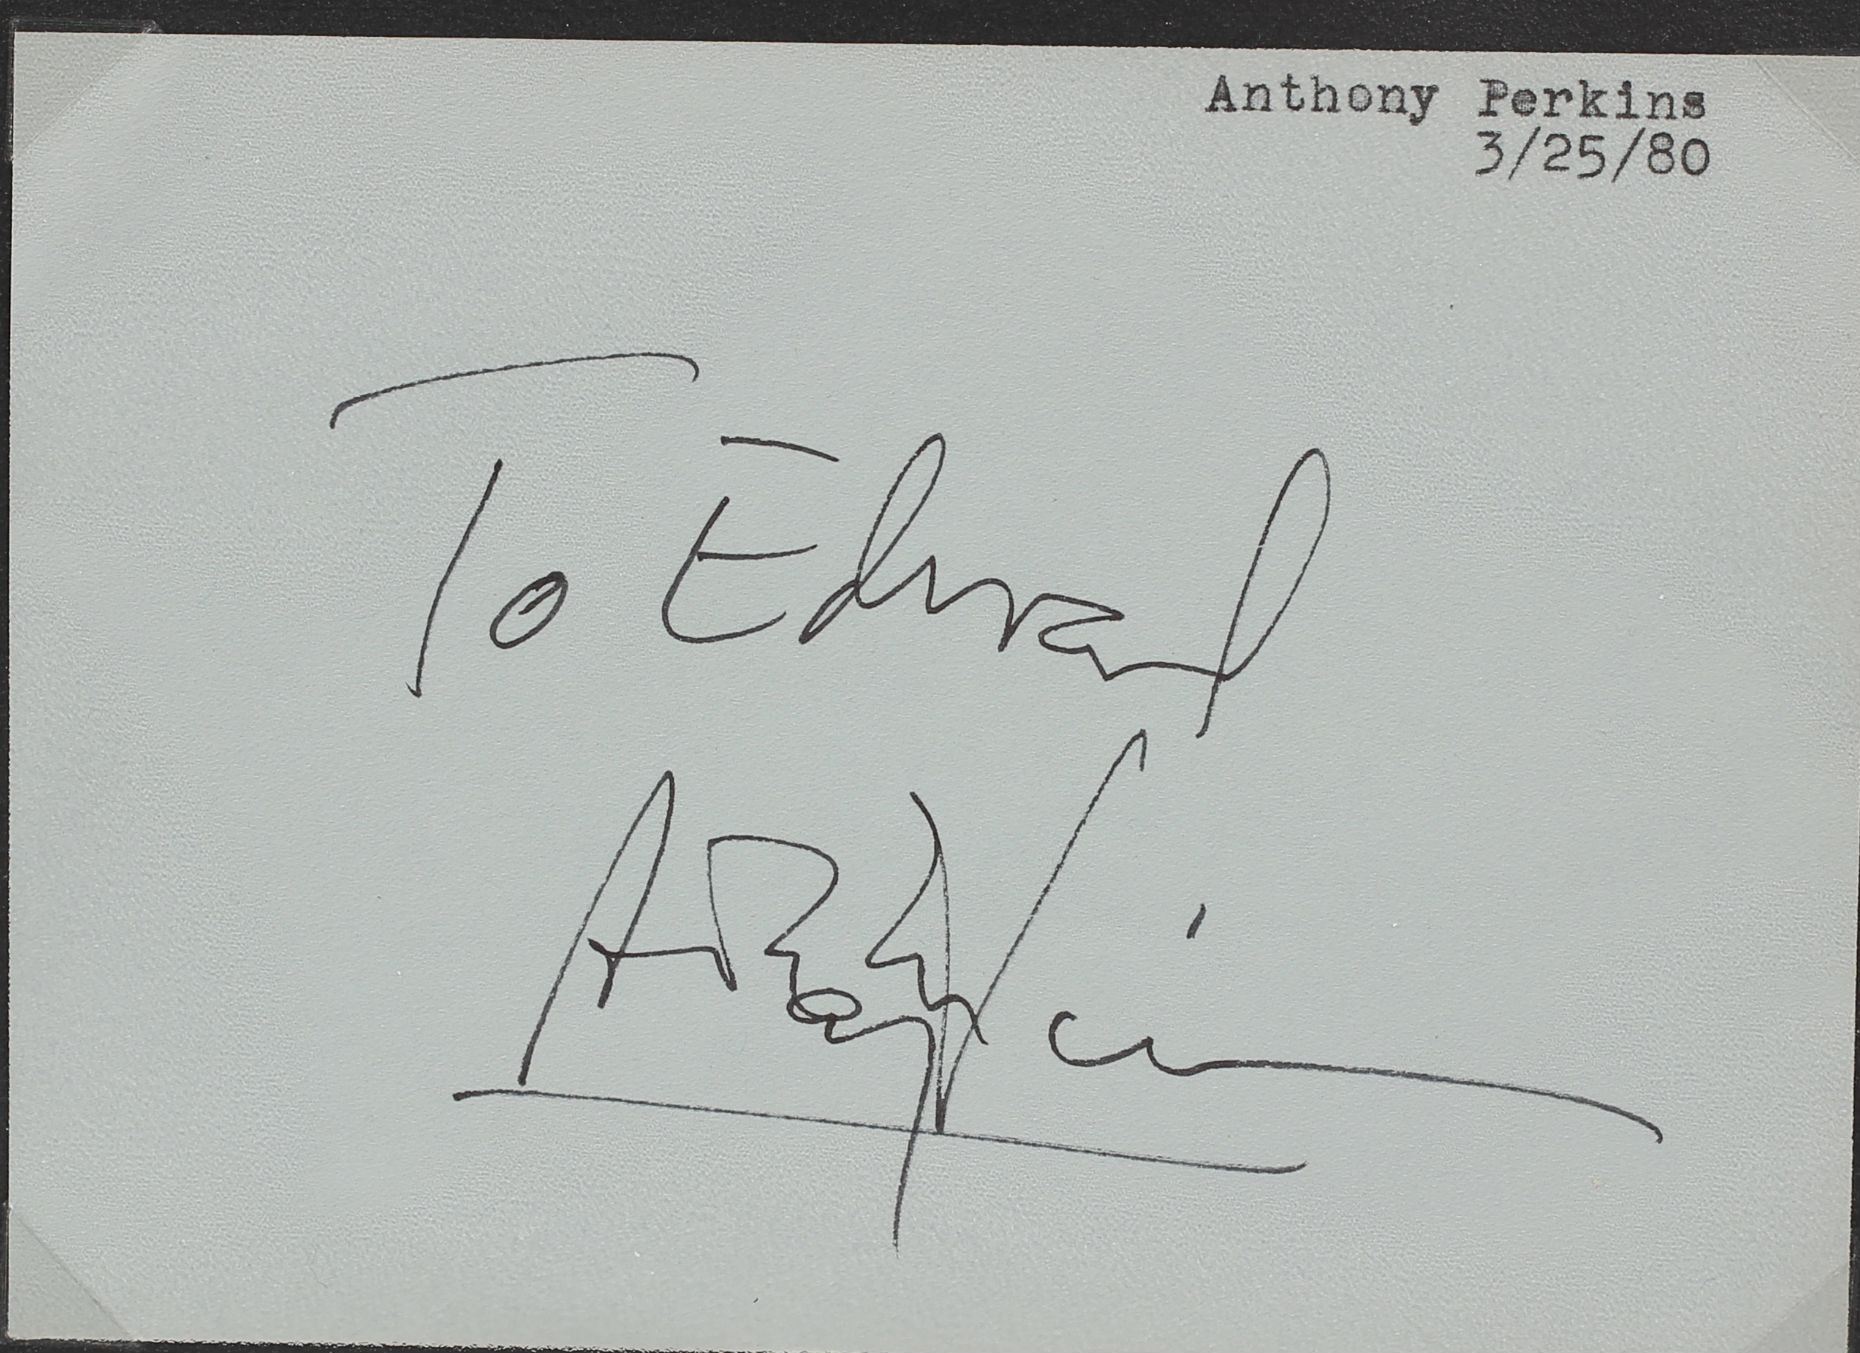 Anthony Perkins
3/25/80
To Edward